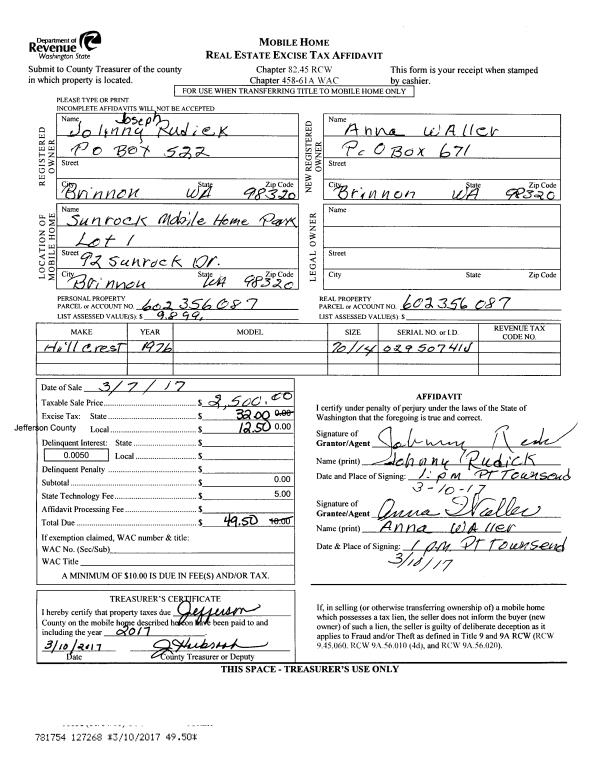 Department of
Revenue
Washington State
MOBILE HOME
REAL ESTATE EXCISE TAX AFFIDAVIT
Submit to County Treasurer of the county
in which property is located.
Chapter 82.45 RCW
Chapter 458-61A WAC
This form is your receipt when stamped
by cashier.
FOR USE WHEN TRANSFERRING TITLE TO MOBILE HOME ONLY
PLEASE TYPE OR PRINT
INCOMPLETE AFFIDAVITS WILL NOT BE ACCEPTED
REGISTERED OWNER
Name Joseph
Johnny Rudick
PO BOX 522
Street
City State Zip Code
Brinnon WA 98320
NEW REGISTERED OWNER
Name
Anna WAller
P.O Box 671
Street
City State Zip Code
Brinnon WA 98320
LOCATION OF MOBILE HOME
Name
Sunrock Mobile Home Park
Lot 1
Street 92 Sunrock Dr.
City State Zip Code
Brinnon WA 98320
LEGAL OWNER
Name
Street
City State Zip Code
PERSONAL PROPERTY
PARCEL or ACCOUNT NO. 602356087
LIST ASSESSED VALUE(S): $ 9,899.
REAL PROPERTY
PARCEL or ACCOUNT NO. 602356087
LIST ASSESSED VALUE(S): $
MAKE YEAR MODEL SIZE SERIAL NO. or I.D. REVENUE TAX CODE NO.
Hillcrest 1976 70/14 02950741J
Date of Sale 3/7/17
Taxable Sale Price $ 2,500.00
Excise Tax: State $ 32.00 0.00
Jefferson County Local $ 12.50 0.00
Delinquent Interest: State $
0.0050 Local $
Delinquent Penalty $
Subtotal $ 0.00
State Technology Fee $ 5.00
Affidavit Processing Fee $
Total Due $ 49.50 10.00
If exemption claimed, WAC number & title:
WAC No. (Sec/Sub)
WAC Title
A MINIMUM OF $10.00 IS DUE IN FEE(S) AND/OR TAX.
AFFIDAVIT
I certify under penalty of perjury under the laws of the State of
Washington that the foregoing is true and correct.
Signature of
Grantor/Agent
Name (print) Johnny Rudick
Date and Place of Signing: 1: pm Pt Townsend
3-10-17
Signature of
Grantee/Agent Anna Waller
Name (print) Anna WAller
Date & Place of Signing: 1 pm PT Townsend
3/10/17
TREASURER'S CERTIFICATE
I hereby certify that property taxes due Jefferson
County on the mobile home described hereon have been paid to and
including the year 2017
3/10/2017
Date County Treasurer or Deputy
If, in selling (or otherwise transferring ownership of) a mobile home
which possesses a tax lien, the seller does not inform the buyer (new
owner) of such a lien, the seller is guilty of deliberate deception as it
applies to Fraud and/or Theft as defined in Title 9 and 9A RCW (RCW
9.45.060. RCW 9A.56.010 (4d), and RCW 9A.56.020).
THIS SPACE - TREASURER'S USE ONLY
781754 127268 *3/10/2017 49.50*